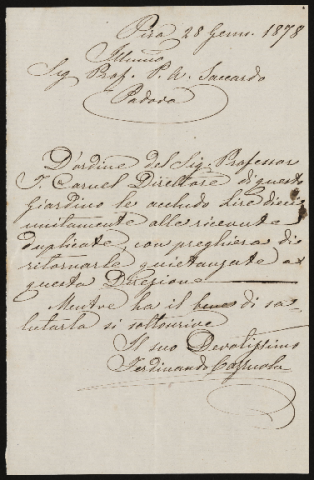 Pisa 28 Genn. 1878
Illmo
Sig Prof. P. A. Saccardo
Padova
D'ordine del Sig. Professor
T. Caruel Direttore di questo
Giardino le accludo Lire dieci
unitamente alle ricevute
duplicate, con preghiera di
ritornarle quietanzate a
questa Direzione
Mentre ha il bene di sa-
lutarla si sottoscrive
Il suo Devotissimo
Ferdinando Cazzuola